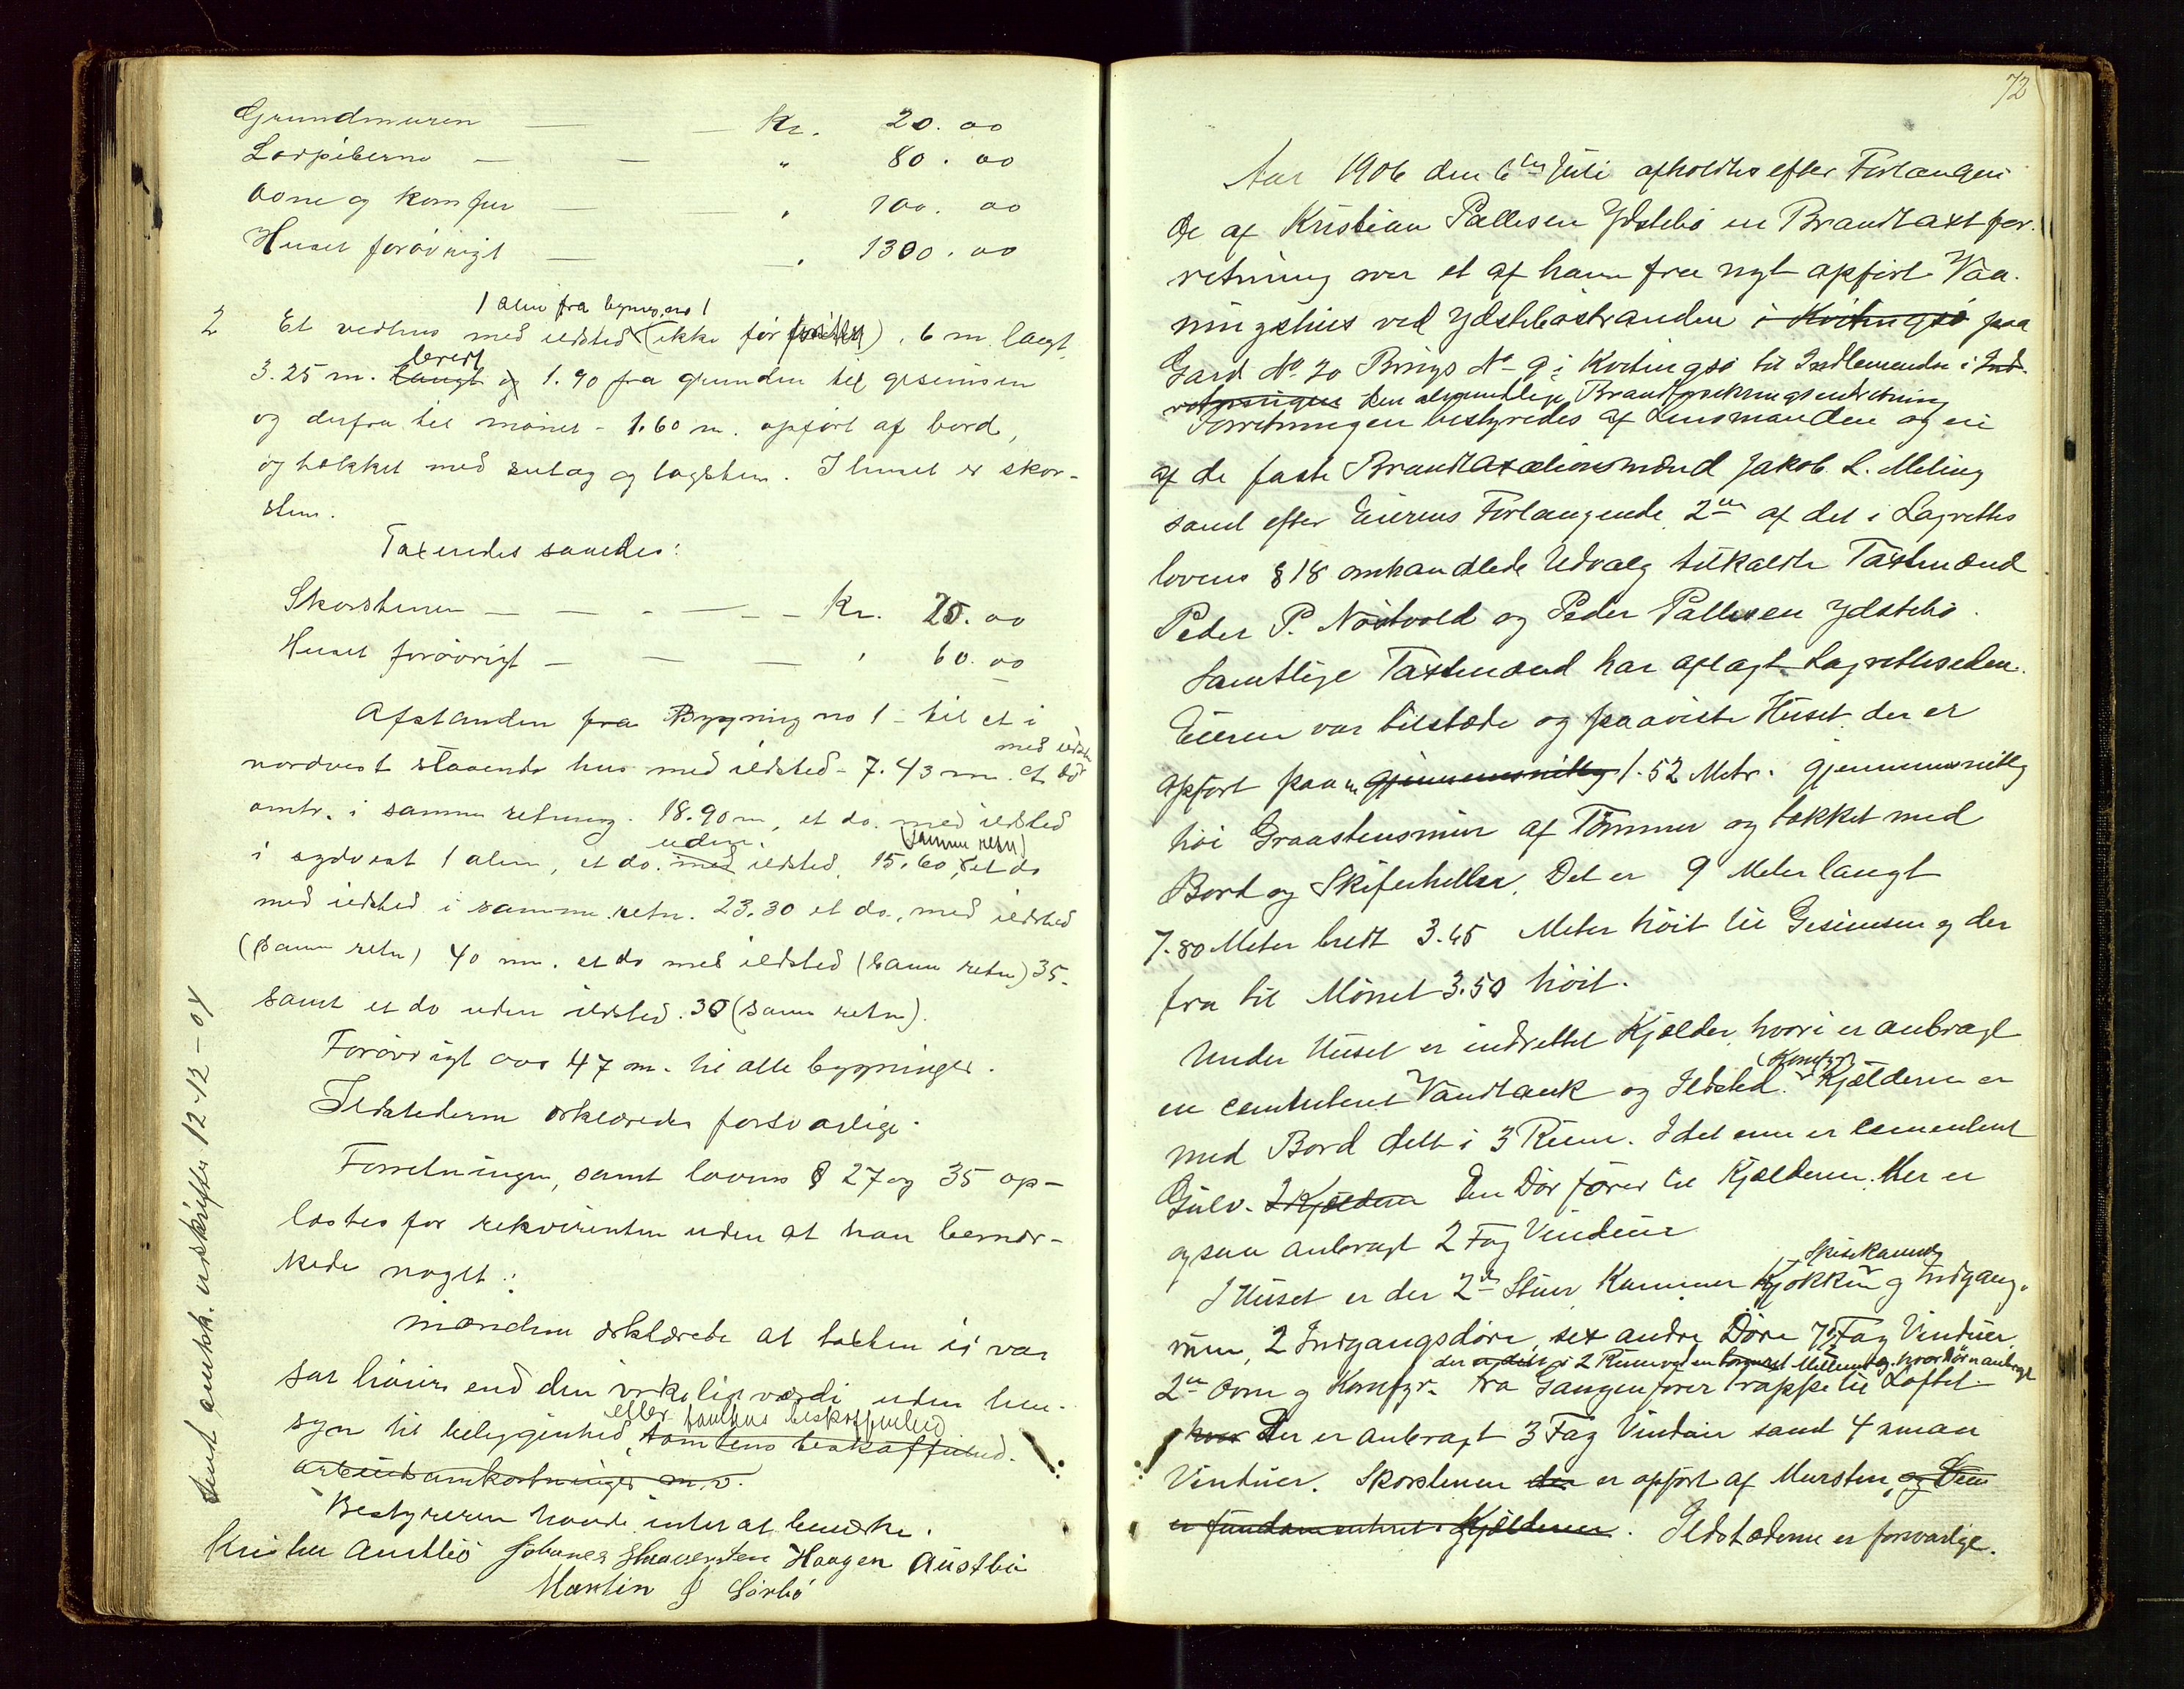 Grundmuren — — Kr. 20.00
Lerpiberne — — " 80.00
Oone og komfur — — " 100.00
Huset forøvrigt — — " 1300.00
1 alen fra bygn. no 1
2 Et vedhus med ildsted (ikke før ), 6 m. langt,
bredt
3.25 m. langt og 1.90 fra grunden til gesimsen
og derfra til mønet - 1.60 m. opført af bord,
og tækket med sutag og tagsten. I huset er skor-
sten.
Taxeredes saaledes:
Skorstenen — — - — - - Kr. 25.00
Huset forøvrigt — — — " 60.00
Afstanden fra Bygning no 1 - til et i
med ildsted
nordvest staaende hus med ildsted - 7.43 m. et do
omtr. i samme retning. 18.90 m, et do. med ildsted
uden. (samme retn)
i sydvest 1 alen, et do. med ildsted, 15.60, et do
med ildsted i samme retn. 23.30 et do., med ildsted
(samme retn) 40 m. et do med ildsted (samme retn) 35.
samt et do uden ildsted. 30 (samme retn).
Forøvrigt over 47 m. til alle bygninger.
Ildstederne erklæredes forsvarlige.
Forretningen, samt lovens § 27 og 35 op-
læstes for rekvirenten uden at han bemær-
kede noget.
Mændene erklærede at taxten ei var
sat høiere end den virkelige værdi uden hen-
eller tomtens beskaffenhed
syn til beliggenhed, tomtens beskaffenhed.
arbeidsomkostninger m. v.
Bestyreren havde intet at bemærke.
Kristen Austbø Johanes Haagen Austbø
Martin J Sørbø
Sendt amtsk. udskrifter 12-12-04
72
Aar 1906 den 6te Juli afholdtes efter Forlangen-
de af Kristian Pallesen Ydstebø en Brandtaxtfor-
retning over et af ham fra nyt opført Vaa-
ningshus ved Ydstebøstranden i Kvitingsø paa
Gard No. 20 Brugs No 9 i Kvitingsø til Indlemmelse i Ind-
den almindelige Brandforsikringsindretning
Forretningen bestyredes af Lensmanden og en
af de faste Brandtaxationsmænd Jakob L. Meling
samt efter Eierens Forlangende 2de af det i Lagrettes
lovens § 18 omhandlede Udvalg tilkaldte Taxtmænd
Peder P. Nødtvold og Peder Pallesen Ydstebø.
Samtlige Taxtmænd har aflagt Lagretteseden.
Eieren var tilstæde og paaviste Huset der er
opført paa en gjennemsnitlig 1.52 Metr. gjennemsnitlig
høi Graastensmur af Tømmer og tækket med
Bord og Skiferheller. Det er 9 Meter langt
7.80 Meter bredt 3.45 Meter høit til Gesimsen og der
fra til Mønet 3.50 høit.
Under Huset er indrettet Kjælder, hvori er anbragt
(Komfyr)
en cementeret Vandtank og Ildsted. Kjælderen er
med Bord delt i 3 Rum. I det ene er cementeret
Gulv. I Kjælderen En Dør fører til Kjælderen. Her er
ogsaa anbragt 2 Fag Vinduer
Spisekammer
I Huset er der 2de Stuer Kammer Kjøkken og Indgang-
rum, 2 Indgangsdøre, sex andre Døre 7 Fag Vinduer
der er delt i 2 Rum ved en hvor Dør er anbragt
2de Ovne og Komfyr. Fra Gangen fører Trappe til Loftet.
hvor Der er anbragt 3 Fag Vinduer samt 4 smaa
Vinduer. Skorstenen der er opført af Mursten, og Den
er fundamenteret i Kjælderen. Ildstæderne er forsvarlige.